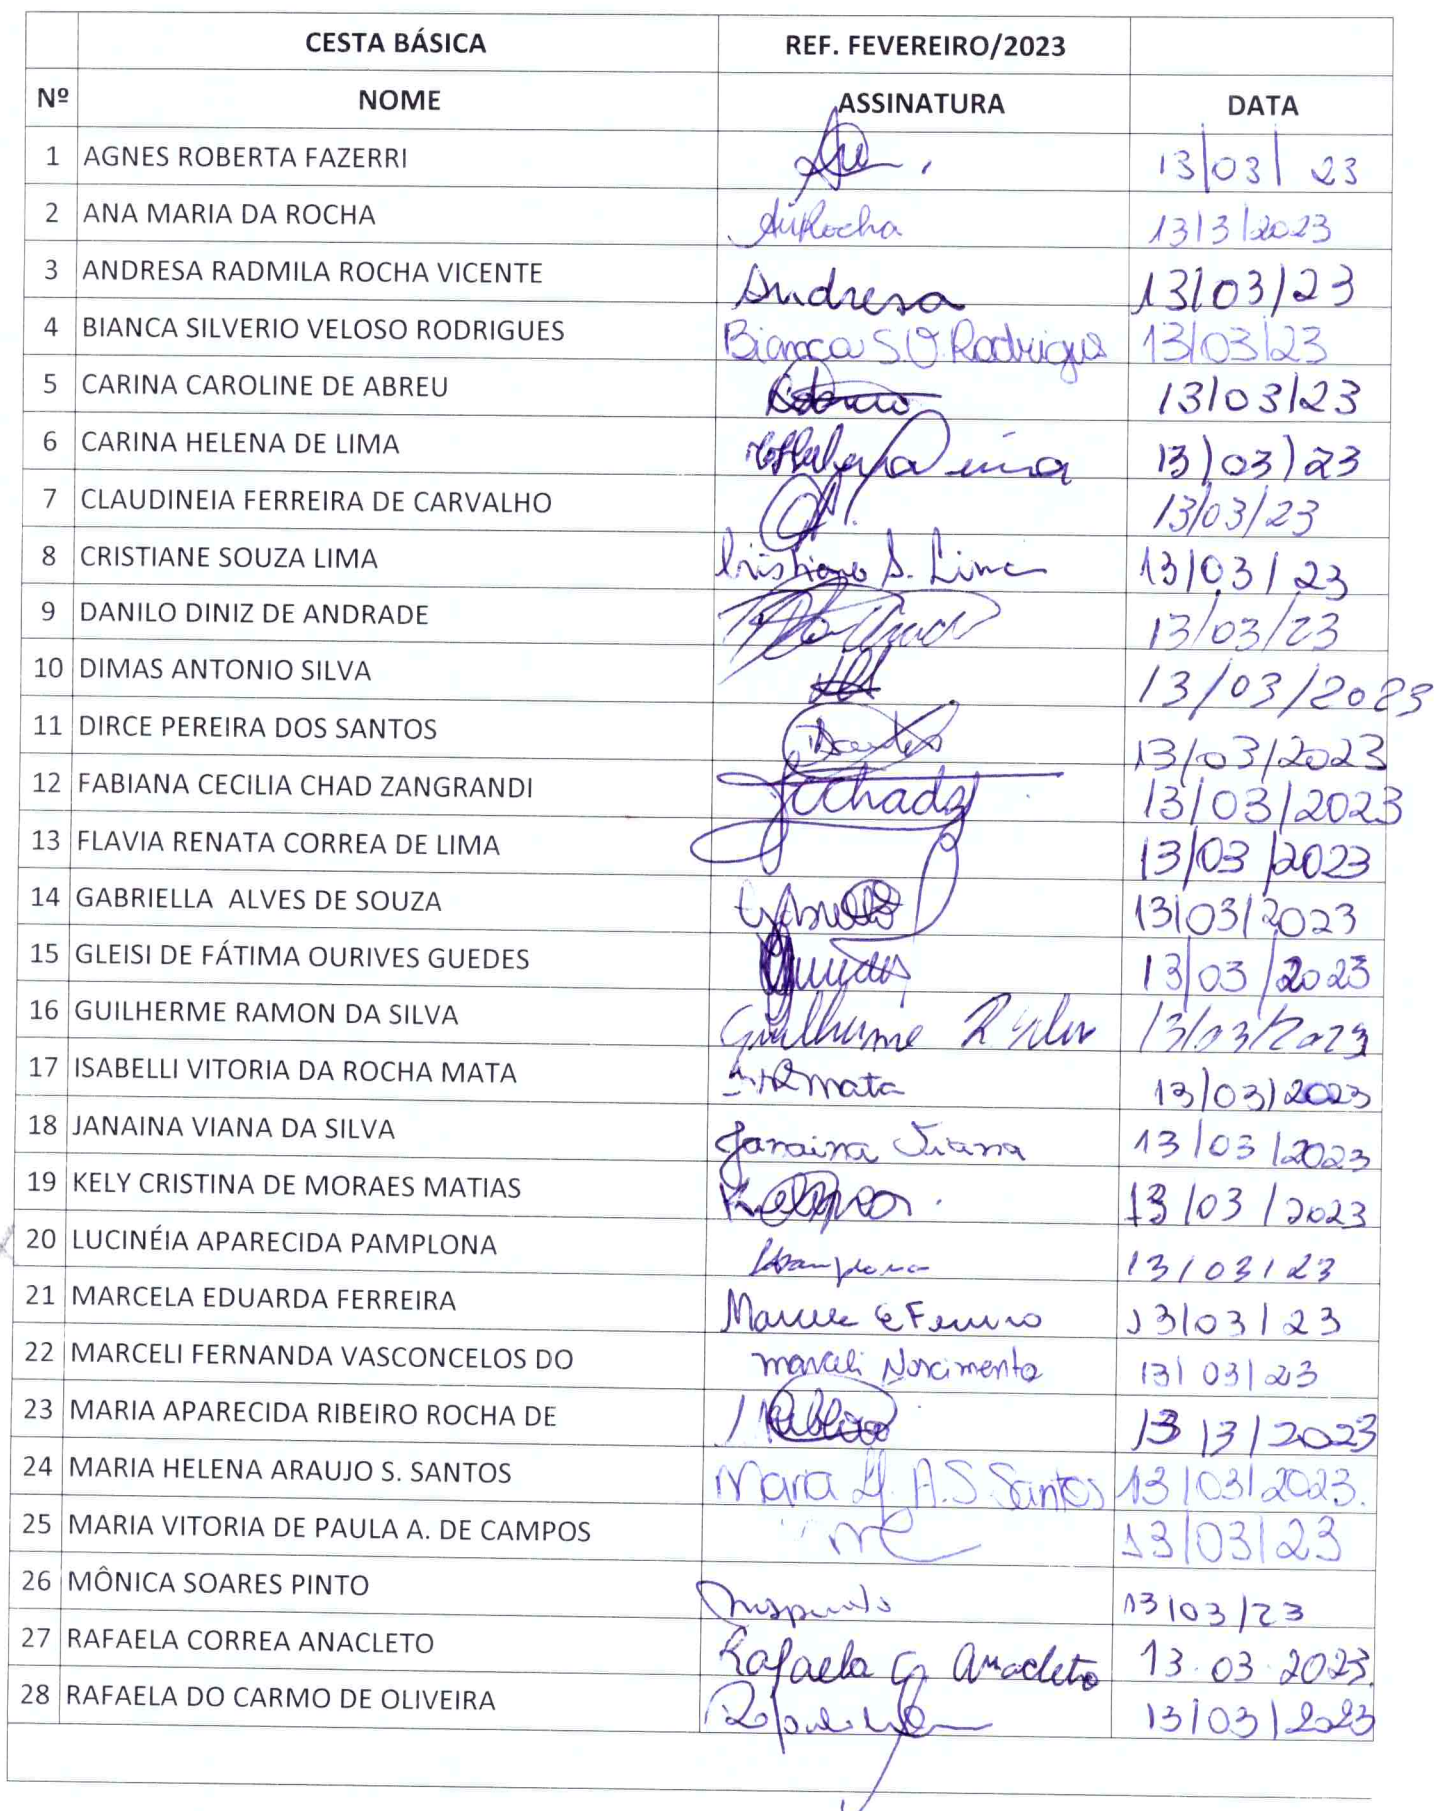 CESTA BÁSICA REF. FEVEREIRO/2023
Nº NOME ASSINATURA DATA
1 AGNES ROBERTA FAZERRI 13/03/23
2 ANA MARIA DA ROCHA AMRocha 13/3/2023
3 ANDRESA RADMILA ROCHA VICENTE Andresa 13/03/23
4 BIANCA SILVERIO VELOSO RODRIGUES Bianca S.V.Rodrigues 13/03/23
5 CARINA CAROLINE DE ABREU 13/03/23
6 CARINA HELENA DE LIMA 13/03/23
7 CLAUDINEIA FERREIRA DE CARVALHO 13/03/23
8 CRISTIANE SOUZA LIMA Cristiane S. Lima 13/03/23
9 DANILO DINIZ DE ANDRADE 13/03/23
10 DIMAS ANTONIO SILVA 13/03/2023
11 DIRCE PEREIRA DOS SANTOS 13/03/2023
12 FABIANA CECILIA CHAD ZANGRANDI 13/03/2023
13 FLAVIA RENATA CORREA DE LIMA 13/03/2023
14 GABRIELLA ALVES DE SOUZA 13/03/2023
15 GLEISI DE FÁTIMA OURIVES GUEDES 13/03/2023
16 GUILHERME RAMON DA SILVA Guilherme R Silva 13/03/2023
17 ISABELLI VITORIA DA ROCHA MATA Mata 13/03/2023
18 JANAINA VIANA DA SILVA Janaina Viana 13/03/2023
19 KELY CRISTINA DE MORAES MATIAS 13/03/2023
20 LUCINÉIA APARECIDA PAMPLONA 13/03/23
21 MARCELA EDUARDA FERREIRA 13/03/23
22 MARCELI FERNANDA VASCONCELOS DO Marceli Nascimento 13/03/23
23 MARIA APARECIDA RIBEIRO ROCHA DE 13/3/2023
24 MARIA HELENA ARAUJO S. SANTOS Maria H. A.S.Santos 13/03/2023.
25 MARIA VITORIA DE PAULA A. DE CAMPOS 13/03/23
26 MÔNICA SOARES PINTO 13/03/23
27 RAFAELA CORREA ANACLETO Rafaela C. Anacleto 13.03.2023.
28 RAFAELA DO CARMO DE OLIVEIRA 13/03/2023